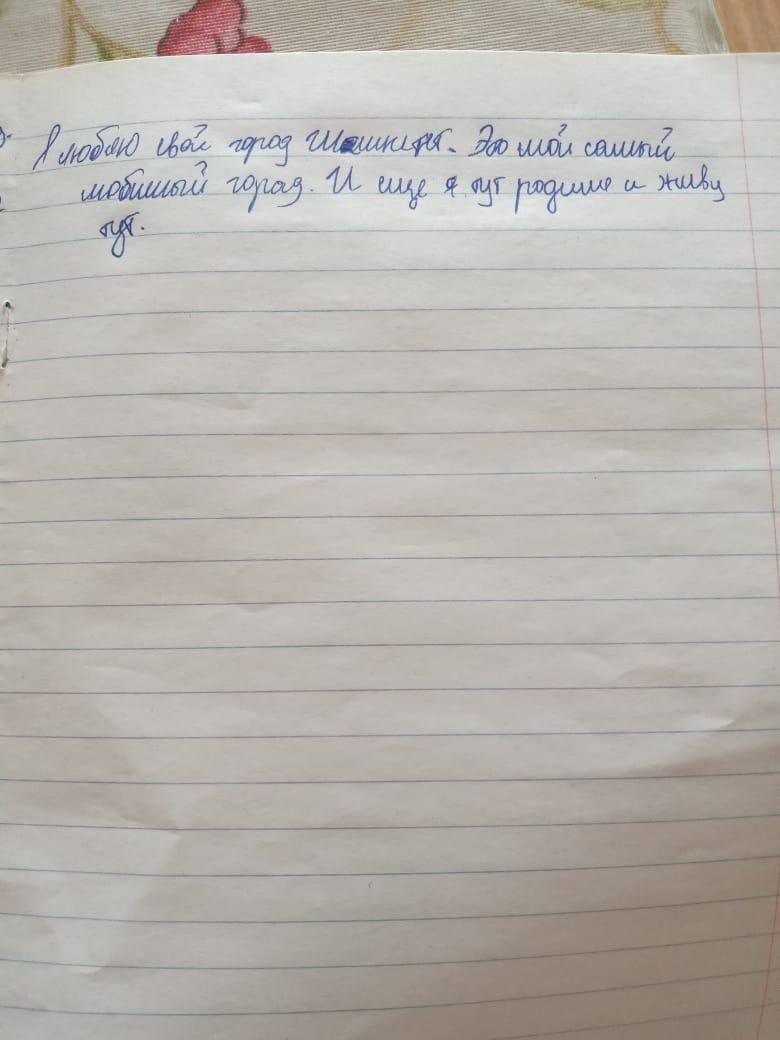 Я люблю свой город Шымкент. Это мой самый
любимый город. И еще я тут родился и живу
тут.